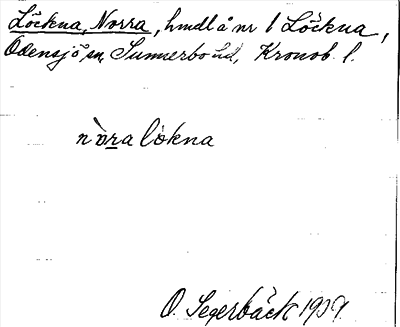 Löckna, Norra, hmdl å nr 1 Löckna,
Odensjö sn, Sunnerbo hd, Kronob. l.
nòra lökna
O. Segerbäck 1909.